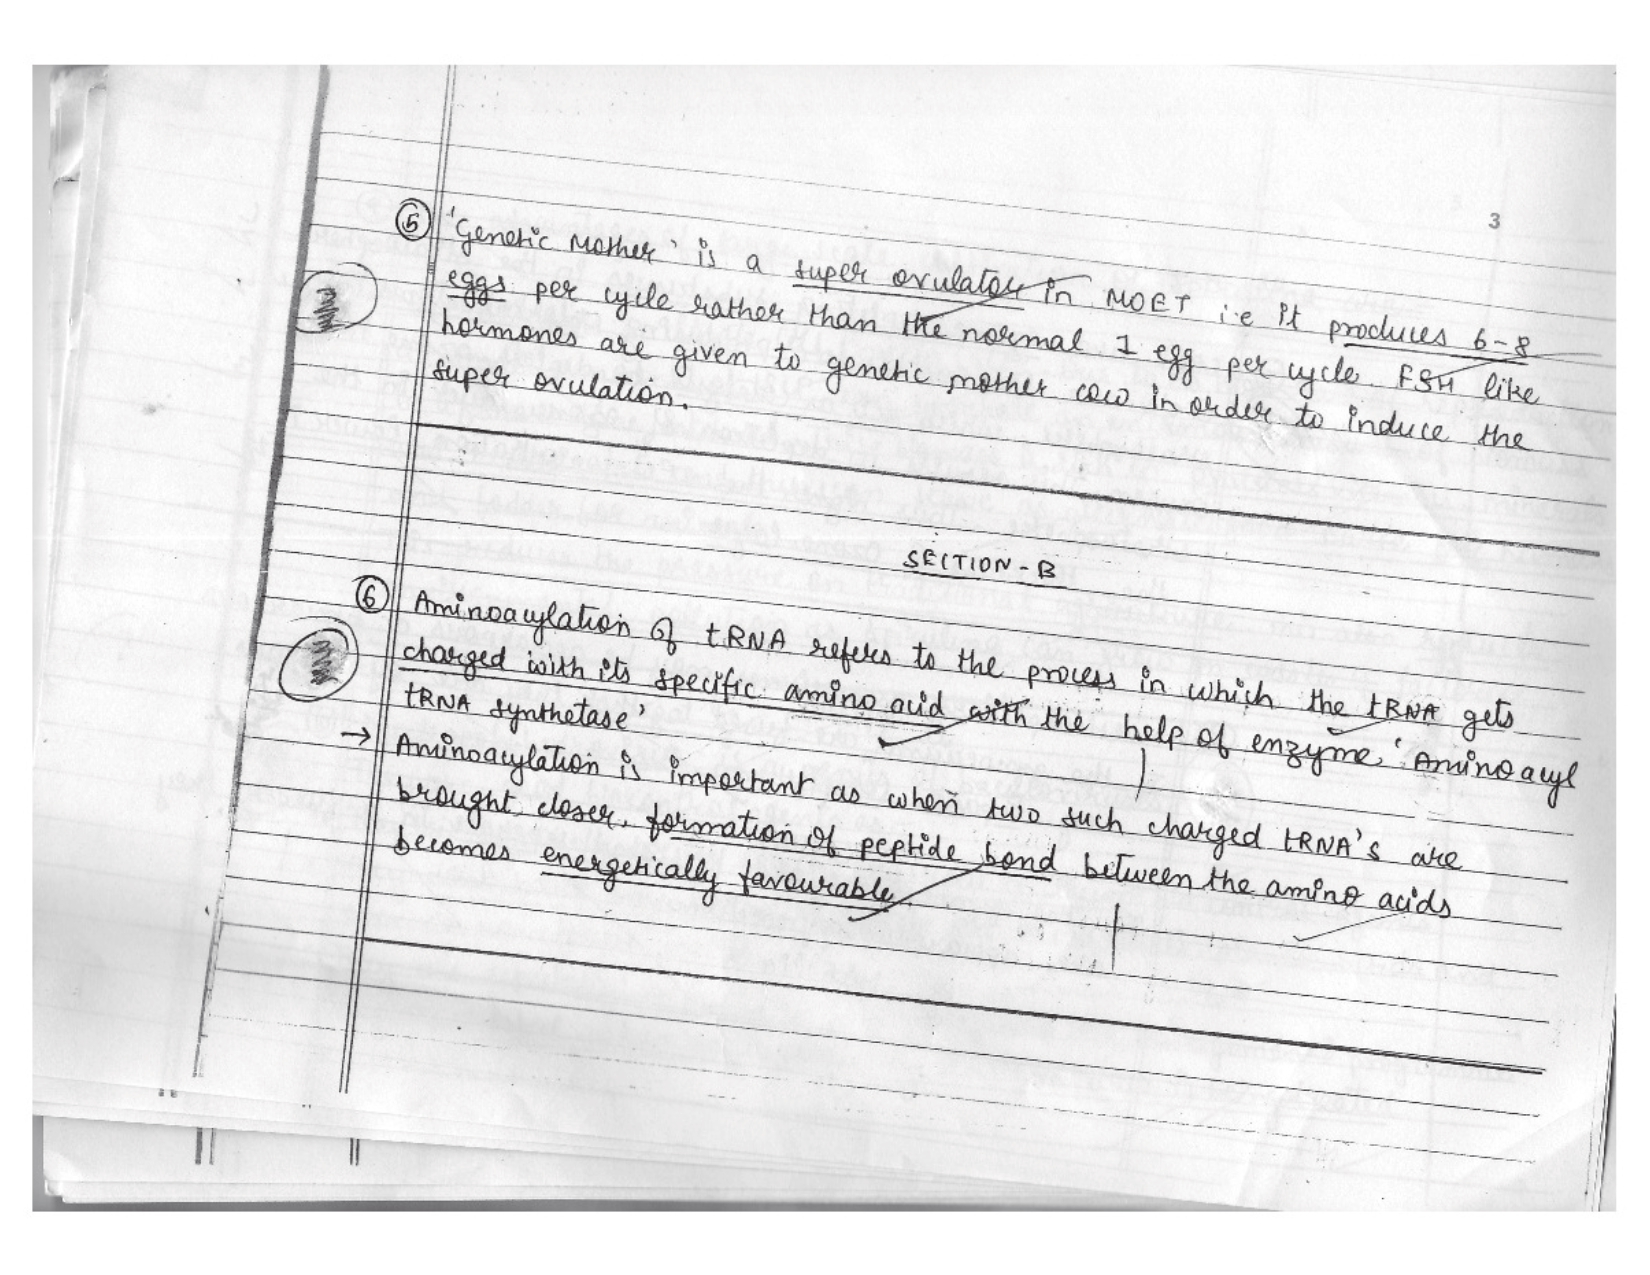 3
5 'Genetic Mother' is a super ovulator in MOET i.e it produces 6-8
eggs per cycle rather than the normal 1 egg per cycle. FSH like
hormones are given to genetic mother cow in order to induce the
super ovulation.
SECTION-B
6 Aminoacylation of tRNA refers to the process in which the tRNA gets
charged with its specific amino acid with the help of enzyme 'Aminoacyl
tRNA synthetase'
→ Aminoacylation is important as when two such charged tRNA's are
brought closer, formation of peptide bond between the amino acids
becomes energetically favourable.